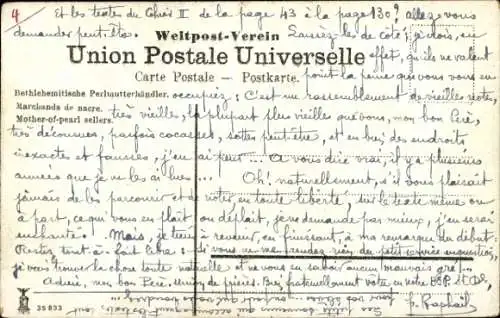 4
Et les textes du Choix II de la page 43 à la page 130? allez-vous
demander peut-être. Laissez-les de côté; je crois, en
Weltpost-Verein
Union Postale Universelle
effet, qu'ils ne valent
Carte Postale — Postkarte.
point la peine que vous vous en
Bethlehemitische Perlmutterhändler.
occupiez; C'est un rassemblement de vieilles notes,
Marchands de nacre.
Mother-of-pearl sellers.
très vieilles, la plupart plus vieilles que vous, mon bon Père,
très décousues, parfois cocasses, sottes peut-être, et en bien des endroits,
inexactes et fausses, j'en ai peur... A vous dire vrai, il y a plusieurs
années que je ne les ai lues... Oh! naturellement, s'il vous plaisait
jamais de les parcourir et de noter, en toute liberté, sur le texte même ou
à part, ce qui vous en plaît ou déplaît, je ne demande pas mieux, j'en serai
enchanté! Mais, je tiens à revenir, en finissant, à ma remarque du début:
Restez tout-à-fait libre: si vous ne me rendez rien du petit
je vous trouve la chose toute naturelle et ne vous en saurai aucun mauvais gré!...
Adieu, mon bon Père. Union de prières. Bien fraternellement vôtre en notre
35833
f. Raphaël